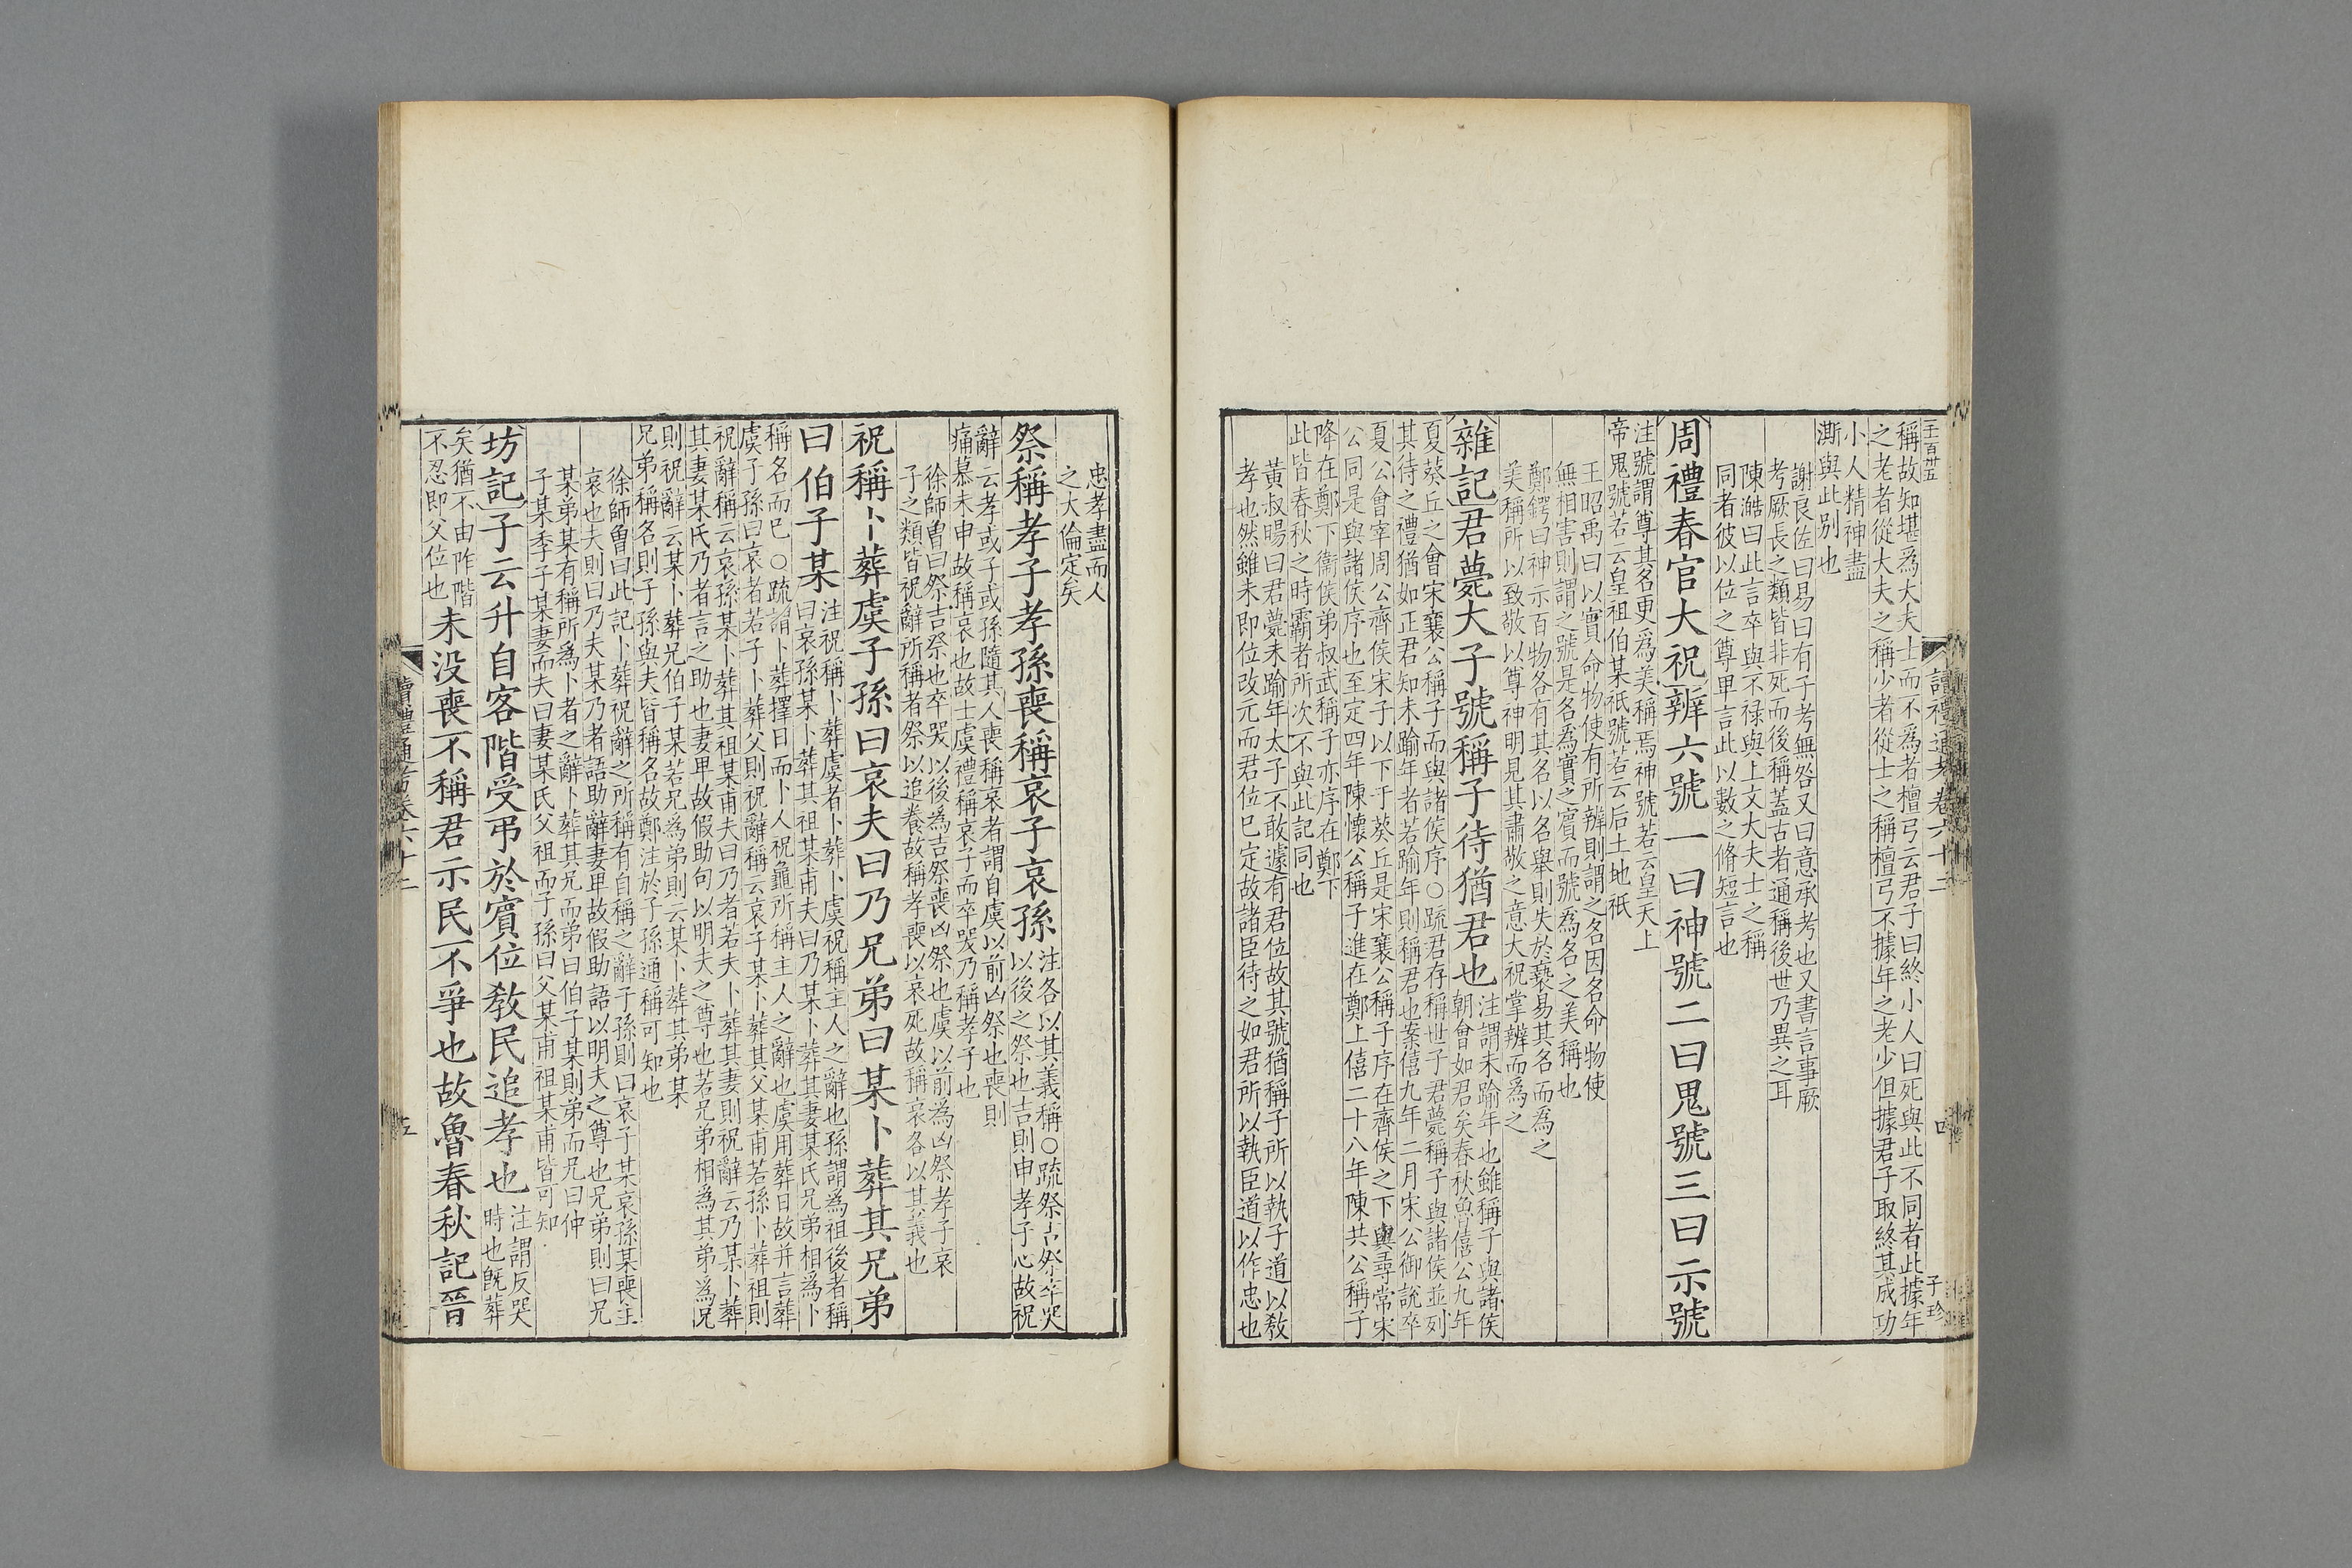 二百卅五
讀禮通考卷六十二
四
子珍
稱故知堪爲大夫士而不為者檀弓云君子曰終小人曰死與此不同者此據年
之老者從大夫之稱少者從士之稱檀弓不據年之老少但據君子取終其成功
小人精神盡
澌與此别也
謝良佐曰易曰有子考無咎又曰意承考也又書言事厥
考厥長之類皆非死而後稱蓋古者通稱後世乃異之耳
陳澔曰此言卒與不禄與上文大夫士之稱
同者彼以位之尊卑言此以數之脩短言也
周禮春官大祝辨六號一曰神號二曰鬼號三曰示號
注號謂尊其名更爲美稱焉神號若云皇天上
帝鬼號若云皇祖伯某祇號若云后土地祇
王昭禹曰以實命物使有所辨則謂之名因名命物使
無相害則謂之號是名爲實之賓而號爲名之美稱也
鄭鍔曰神示百物各有其名以名舉則失於褻易其名而為之
美稱所以致敬以尊神明見其肅敬之意大祝掌辨而爲之
雜記君薨大子號稱子待猶君也
注謂未踰年也雖稱子與諸侯
朝會如君矣春秋魯僖公九年
夏葵丘之會宋襄公稱子而與諸侯序○疏君存稱世子君薨稱子與諸侯並列
其待之禮猶如正君知未踰年者若踰年則稱君也案僖九年二月宋公御說卒
夏公會宰周公齊侯宋子以下于葵丘是宋襄公稱子序在齊侯之下與尋常宋
公同是與諸侯序也至定四年陳懷公稱子進在鄭上僖二十八年陳共公稱子
降在鄭下衞侯弟叔武稱子亦序在鄭下
此皆春秋之時霸者所次不與此記同也
黃叔暘曰君薨未踰年太子不敢遽有君位故其號猶稱子所以執子道以敎
孝也然雖未即位改元而君位已定故諸臣待之如君所以執臣道以作忠也
忠孝盡而人
之大倫定矣
祭稱孝子孝孫喪稱哀子哀孫
注各以其義稱○疏祭吉祭卒哭
以後之祭也吉則申孝子心故祝
辭云孝或子或孫隨其人喪稱哀者謂自虞以前凶祭也喪則
痛慕未申故稱哀也故士虞禮稱哀子而卒哭乃稱孝子也
徐師曾曰祭吉祭也卒哭以後為吉祭喪凶祭也虞以前為凶祭孝子哀
子之類皆祝辭所稱者祭以追養故稱孝喪以哀死故稱哀各以其義也
祝稱卜葬虞子孫曰哀夫曰乃兄弟曰某卜葬其兄弟
曰伯子某
注祝稱卜葬虞者卜葬卜虞祝稱主人之辭也孫謂爲祖後者稱
曰哀孫某卜葬其祖某甫夫曰乃某卜葬其妻某氏兄弟相爲卜
稱名而已○疏謂卜葬擇日而卜人祝龜所稱主人之辭也虞用葬日故并言葬
虞子孫曰哀者若子卜葬父則祝辭稱云哀子某卜葬其父某甫若孫卜葬祖則
祝辭稱云哀孫某卜葬其祖某甫夫曰乃者若夫卜葬其妻則祝辭云乃某卜葬
其妻某氏乃者言之助也妻卑故假助句以明夫之尊也若兄弟相爲其弟爲兄
則祝辭云某卜葬兄伯子某若兄爲弟則云某卜葬其弟某
兄弟稱名則子孫與夫皆稱名故鄭注於子孫通稱可知也
徐師曾曰此記卜葬祝辭之所稱有自稱之辭子孫則曰哀子某哀孫某喪主
哀也夫則曰乃夫某乃者語助辭妻卑故假助語以明夫之尊也兄弟則曰兄
某弟某有稱所爲卜者之辭卜葬其兄而弟曰伯子某則弟而兄曰仲
子某季子某妻而夫曰妻某氏父祖而子孫曰父某甫祖某甫皆可知
坊記子云升自客階受弔於賓位敎民追孝也
注謂反哭
時也旣葬
矣猶不由阼階
不忍即父位也
未没喪不稱君示民不爭也故魯春秋記晉
讀禮通考卷六十二
五